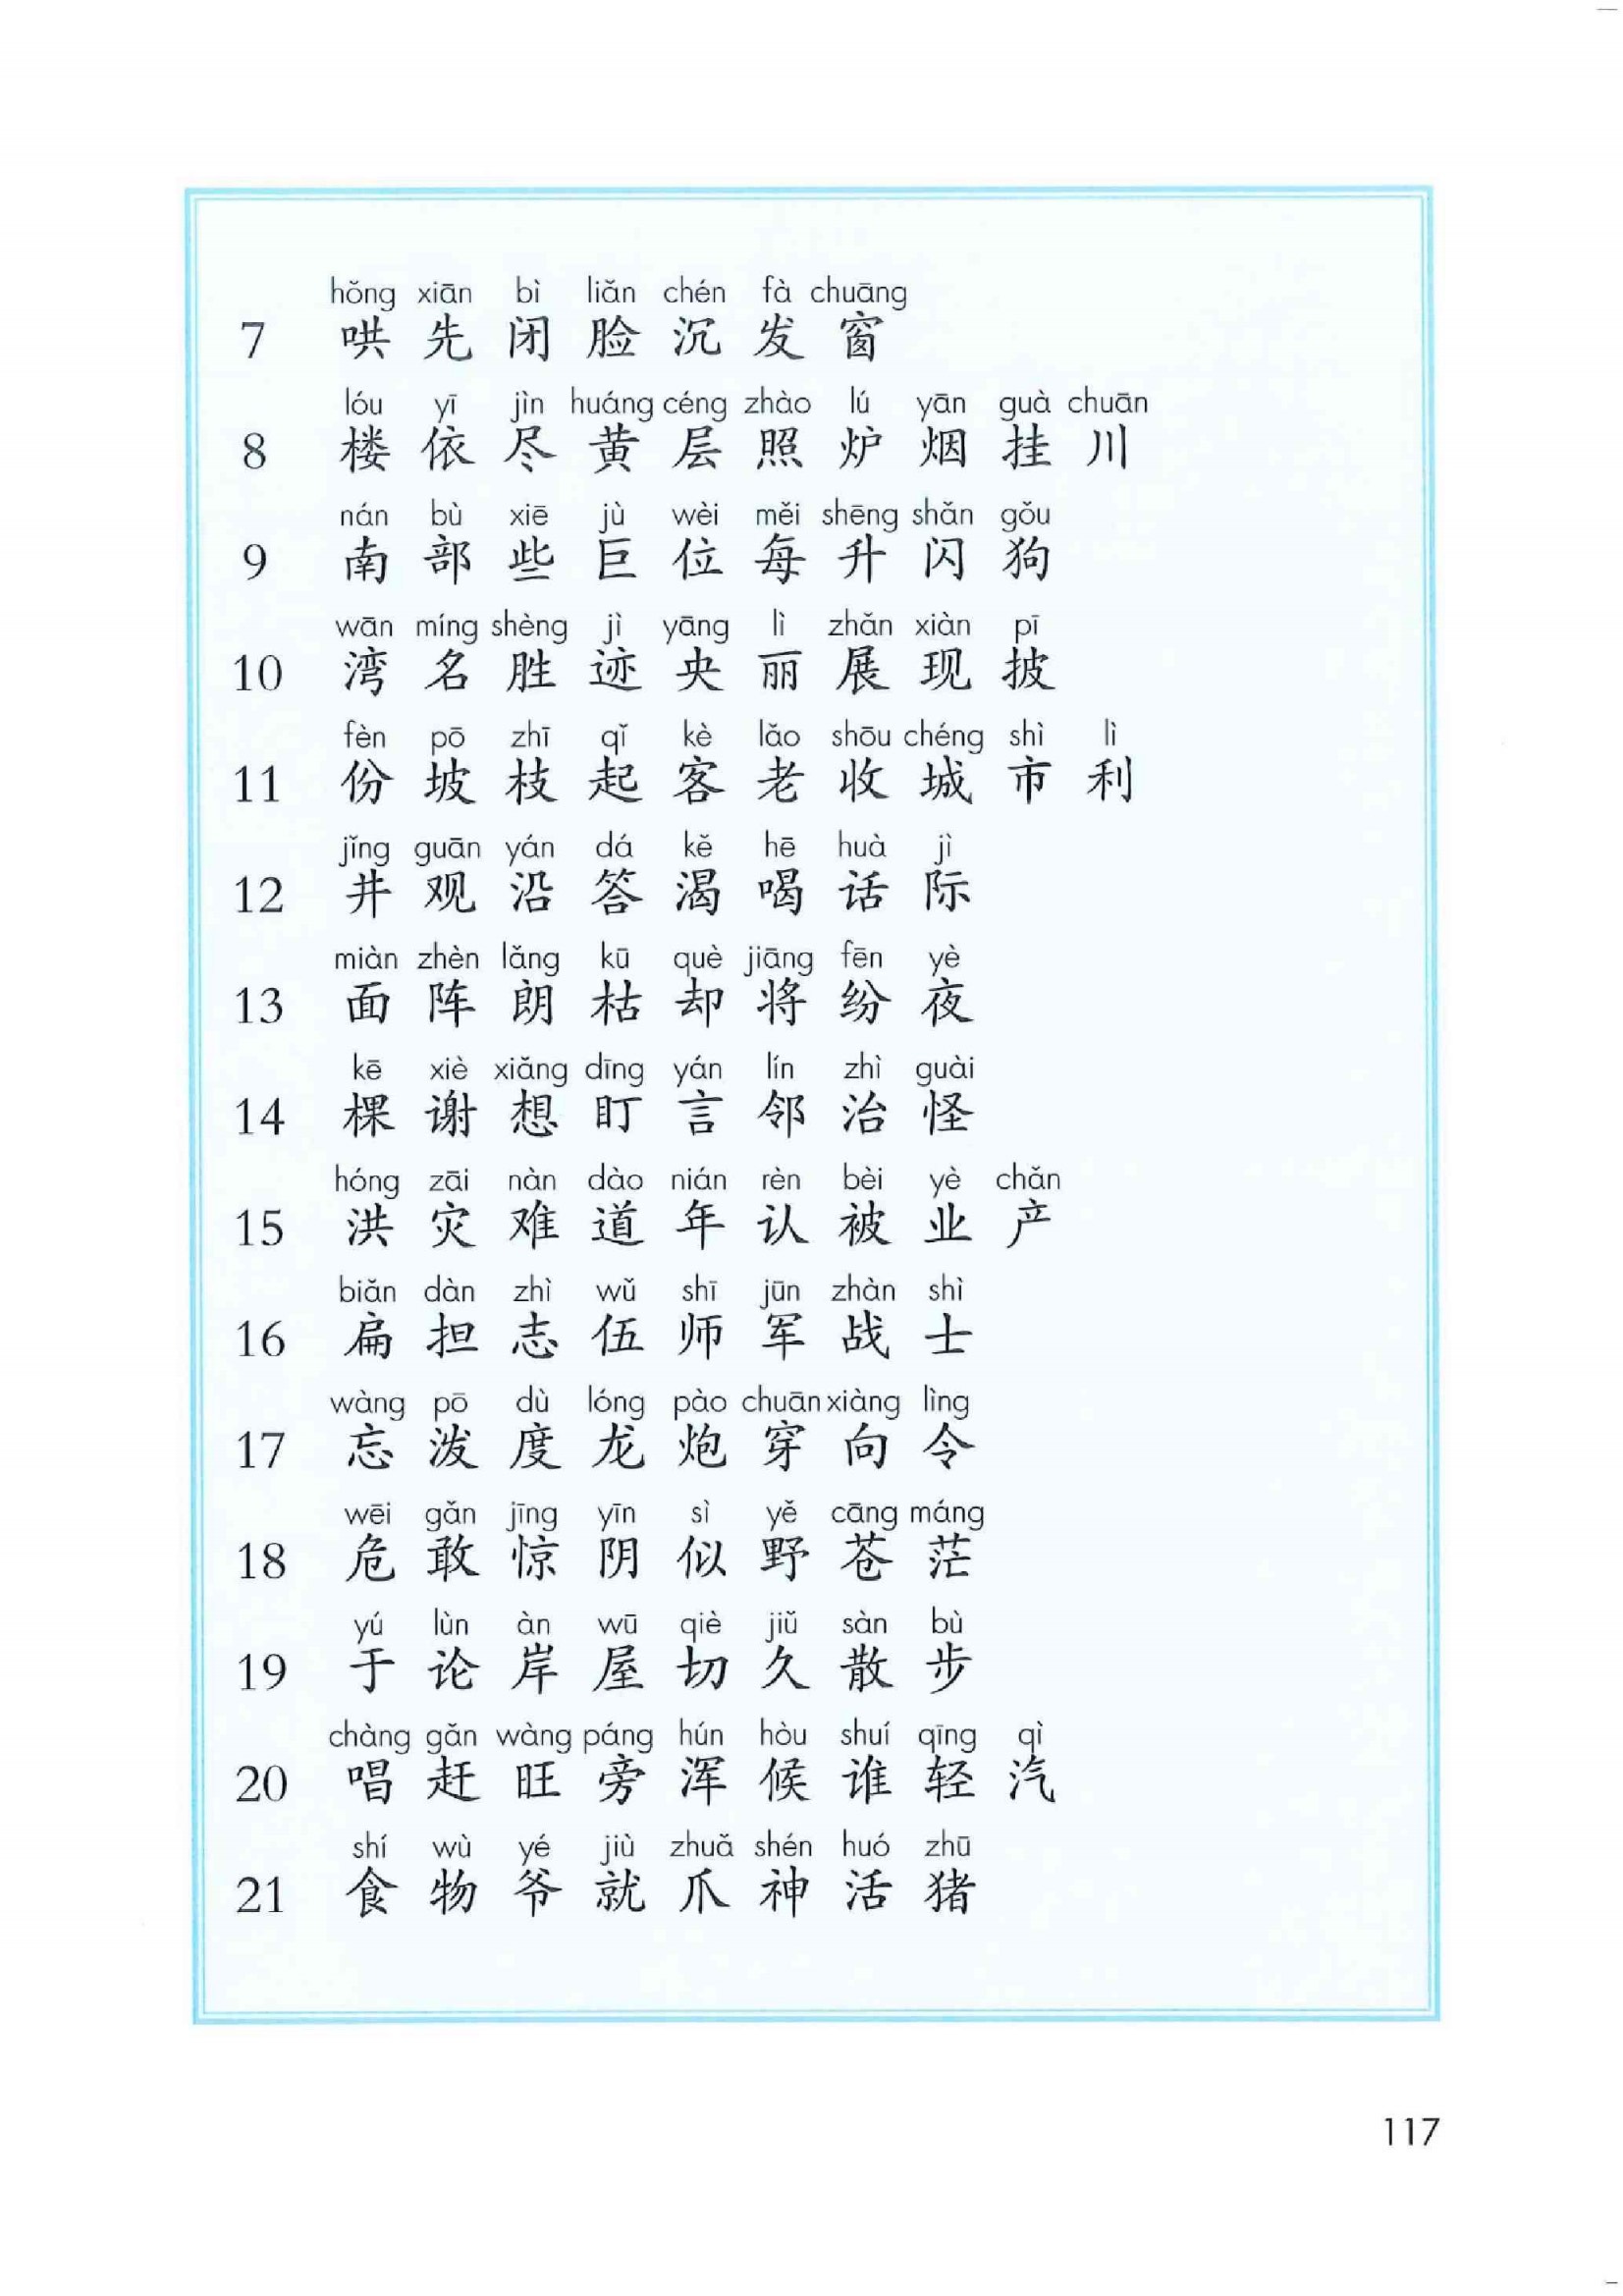 hǒng xiān bì liǎn chén fà chuāng
7 哄 先 闭 脸 沉 发 窗
lóu yī jìn huáng céng zhào lú yān guà chuān
8 楼 依 尽 黄 层 照 炉 烟 挂 川
nán bù xiē jù wèi měi shēng shǎn gǒu
9 南 部 些 巨 位 每 升 闪 狗
wān míng shèng jì yāng lì zhǎn xiàn pī
10 湾 名 胜 迹 央 丽 展 现 披
fèn pō zhī qǐ kè lǎo shōu chéng shì lì
11 份 坡 枝 起 客 老 收 城 市 利
jǐng guān yán dá kě hē huà jì
12 井 观 沿 答 渴 喝 话 际
miàn zhèn lǎng kū què jiāng fēn yè
13 面 阵 朗 枯 却 将 纷 夜
kē xiè xiǎng dīng yán lín zhì guài
14 棵 谢 想 盯 言 邻 治 怪
hóng zāi nàn dào nián rèn bèi yè chǎn
15 洪 灾 难 道 年 认 被 业 产
biǎn dàn zhì wǔ shī jūn zhàn shì
16 扁 担 志 伍 师 军 战 士
wàng pō dù lóng pào chuān xiàng lìng
17 忘 泼 度 龙 炮 穿 向 令
wēi gǎn jīng yīn sì yě cāng máng
18 危 敢 惊 阴 似 野 苍 茫
yú lùn àn wū qiè jiǔ sàn bù
19 于 论 岸 屋 切 久 散 步
chàng gǎn wàng páng hún hòu shuí qīng qì
20 唱 赶 旺 旁 浑 候 谁 轻 汽
shí wù yé jiù zhuǎ shén huó zhū
21 食 物 爷 就 爪 神 活 猪
117